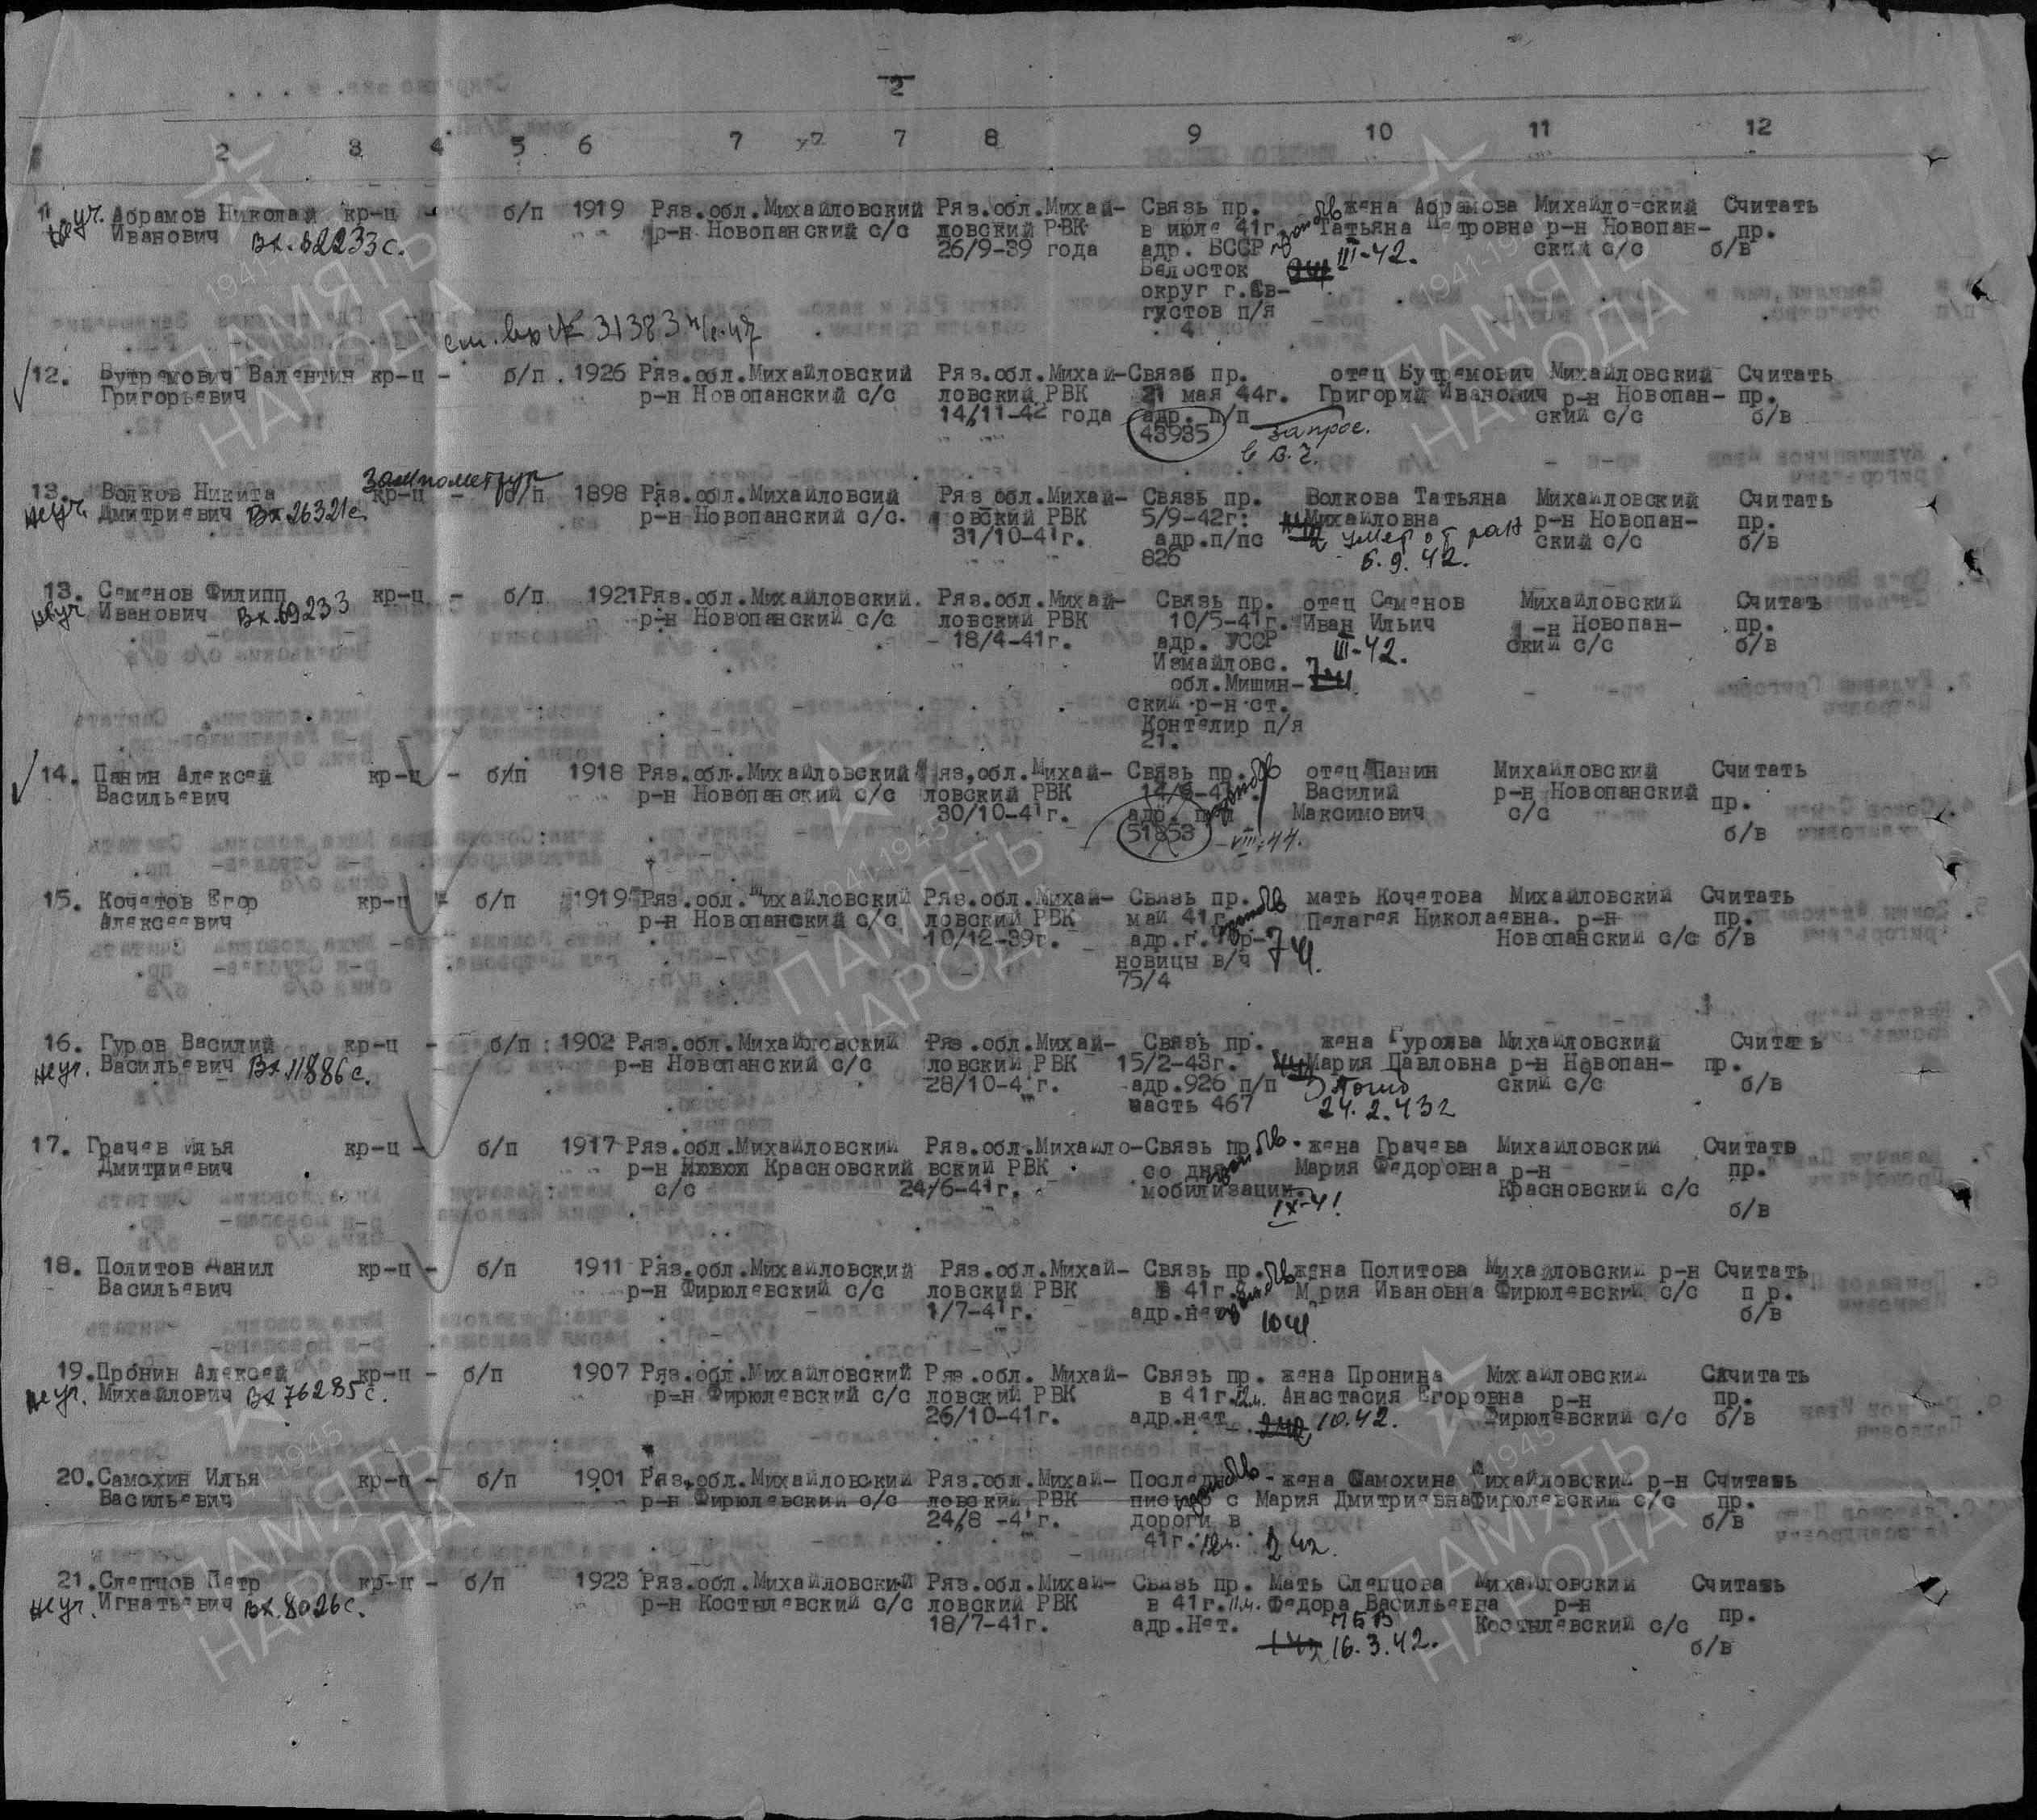 2
2 3 4 5 6 7 7 8 9 10 11 12
неуч. Абрамов Николай кр-ц - б/п 1919 Ряз.обл.Михайловский Ряз.обл.Михай- Связь пр. жена Абрамова Михайловский Считать
Иванович Вх.62233с. р-н Новопанский с/с ловский РВК в июле 41г. Татьяна Петровна р-н Новопан- пр.
26/9-39 года адр. БССР III-42. ский с/с б/в
Белосток
округ г.Ав-
густов п/я
4
31383
12. Бутрамович Валентин кр-ц - б/п . 1926 Ряз.обл.Михайловский Ряз.обл.Михай- Связь пр. отец Бутрамович Михайловский Считать
Григорьевич р-н Новопанский с/с ловский РВК 21 мая 44г. Григорий Иванович р-н Новопан- пр.
14/11-42 года адр. п/п запрос. ский с/с б/в
43935 в в.ч.
13. Волков Никита кр-ц - б/п 1898 Ряз.обл.Михайловсий Ряз обл.Михай- Связь пр. Волкова Татьяна Михайловский Считать
неуч. Дмитриевич Вх26321с р-н Новопанский с/с. овский РВК 5/9-42г. Михайловна р-н Новопан- пр.
31/10-41г. адр.п/пс умер от ран ский с/с б/в
826 6.9.42.
13. Семенов Филипп кр-ц - б/п 1921 Ряз.обл.Михайловский. Ряз.обл.Михай- Связь пр. отец Семенов Михайловский Считать
неуч Иванович Вх.69233 р-н Новопанский с/с ловский РВК 10/5-41г. Иван Ильич -н Новопан- пр.
18/4-41г. адр. УССР III-42. ский с/с б/в
Измайловс.
обл.Мишин-
ский р-н ст.
Контелир п/я
21.
14. Панин Алексей кр-ц - б/п 1918 Ряз.обл.Михайловский яз,обл.Михай- Связь пр. отец Панин Михайловский Считать
Васильевич р-н Новопанский с/с ловский РВК Василий р-н Новопанский пр.
30/10-41г. адр. Максимович с/с б/в
51853 -VIII-44.
15. Кочетов Егор кр-ц - б/п 1919 Ряз.обл.Михайловский Ряз.обл.Михай- Связь пр. мать Кочетова Михайловский Считать
Алексеевич р-н Новопанский с/с ловский РВК май 41г. Пелагея Николаевна. р-н пр.
10/12-39г. адр.г. Новопанский с/с б/в
новицы в/ч
75/4
16. Гуров Василий кр-ц - б/п : 1902 Ряз.обл.Михайловский Ряз.обл.Михай- Связь пр. жена Гурова Михайловский Считать
неуч. Васильевич Вх.11886с. р-н Новопанский с/с ловский РВК 15/2-43г. Мария Павловна р-н Новопан- пр.
28/10-4 г. адр.926 п/п ский с/с б/в
часть 467 24.2.43г
17. Грачев Илья кр-ц - б/п 1917 Ряз.обл.Михайловский Ряз.обл.Михайло- Связь пр жена Грачева Михайловский Считать
Дмитриевич р-н Красновский вский РВК со дня Мария Федоровна р-н пр.
с/с 24/6-41г. мобилизации. Красновский с/с
IX-41 б/в
18. Политов Данил кр-ц - б/п 1911 Ряз.обл.Михайловский Ряз.обл.Михай- Связь пр. жена Политова Михайловский р-н Считать
Васильевич р-н Фирюлевский с/с ловский РВК в 41г. Мария Ивановна Фирюлевский с/с пр.
1/7-41г. адр.нет 10 41 б/в
19. Пронин Алексей кр-ц - б/п 1907 Ряз.обл.Михайловский Ряз.обл. Михай- Связь пр. жена Пронина Михайловский Считать
неуч. Михайлович Вх76285с. р-н Фирюлевский с/с ловский РВК в 41г. Анастасия Егоровна р-н пр.
26/10-41г. адр.нет 10.42. Фирюлевский с/с б/в
20. Самохин Илья кр-ц - б/п 1901 Ряз.обл.Михайловский Ряз.обл.Михай- жена Самохина Михайловский р-н Считать
Васильевич р-н Фирюлевский с/с ловский РВК с Мария Дмитриевна Фирюлевский с/с пр.
24/8 -4 г. дороги в б/в
41г. 2 42.
21. Слепцов Петр кр-ц - б/п 1923 Ряз.обл.Михайловский Ряз.обл.Михай- Связь пр. Мать Слепцова Михайловский Считать
неуч. Игнатьевич Вх.8026с. р-н Костылевский с/с ловский РВК в 41г.11м. Федора Васильевна р-н пр.
18/7-41г. адр.Нет. ПБВ Костылевский с/с
16.3.42. б/в
ПАМЯТЬ
НАРОДА
1941-1945